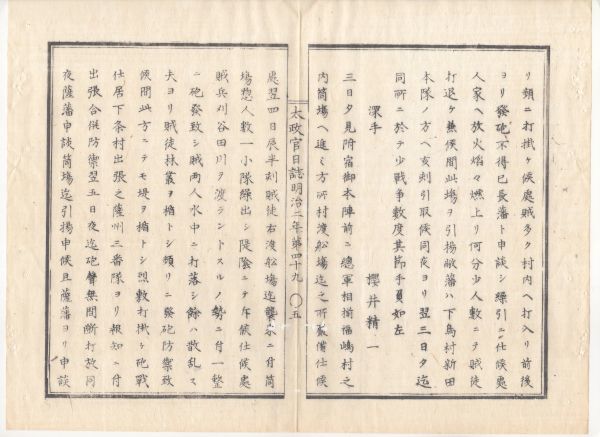 リ頻ニ打掛ケ候處賊多ク村内ヘ打入リ前後
ヨリ發砲不得已長藩ト申談シ繰引ニ仕候處
人家ヘ放火焰々燃上リ何分少人數ニテ賊徒
打退ケ兼候間此塲ヲ引揚敝藩ハ下鳥村新田
本隊ノ方ヘ亥刻引取候同夜ヨリ翌三日夕迄
同所ニ於テ少戰爭數度其節手負如左
深手
櫻井精一
三日夕見附宿御本陣前ニ總軍相揃福嶋村之
内筒塲ヘ進ミ方所村渡船塲迄之所嚴備仕候
太政官日誌明治二年第四十九
〇五
處翌四日辰半刻賊徒右渡船塲迄襲來ニ付筒
塲惣人數一小隊繰出シ隄陰ニテ斥候仕候處
賊兵刈谷田川ヲ渡ラントスルノ勢ニ付一整
ニ砲發致シ賊两人水中ニ打落シ餘ハ散乱ス
夫ヨリ賊徒林叢ヲ楯トシ頻リニ發砲防禦致
候間此方ニテモ堤ヲ楯トシ烈敷打掛ケ砲戰
仕居下条村出張之薩州三番隊ヨリ報知ニ付
出張合併防禦翌五日夜迄砲聲無間斷打放同
夜薩藩申談筒塲迄引揚申候且薩藩ヨリ申談